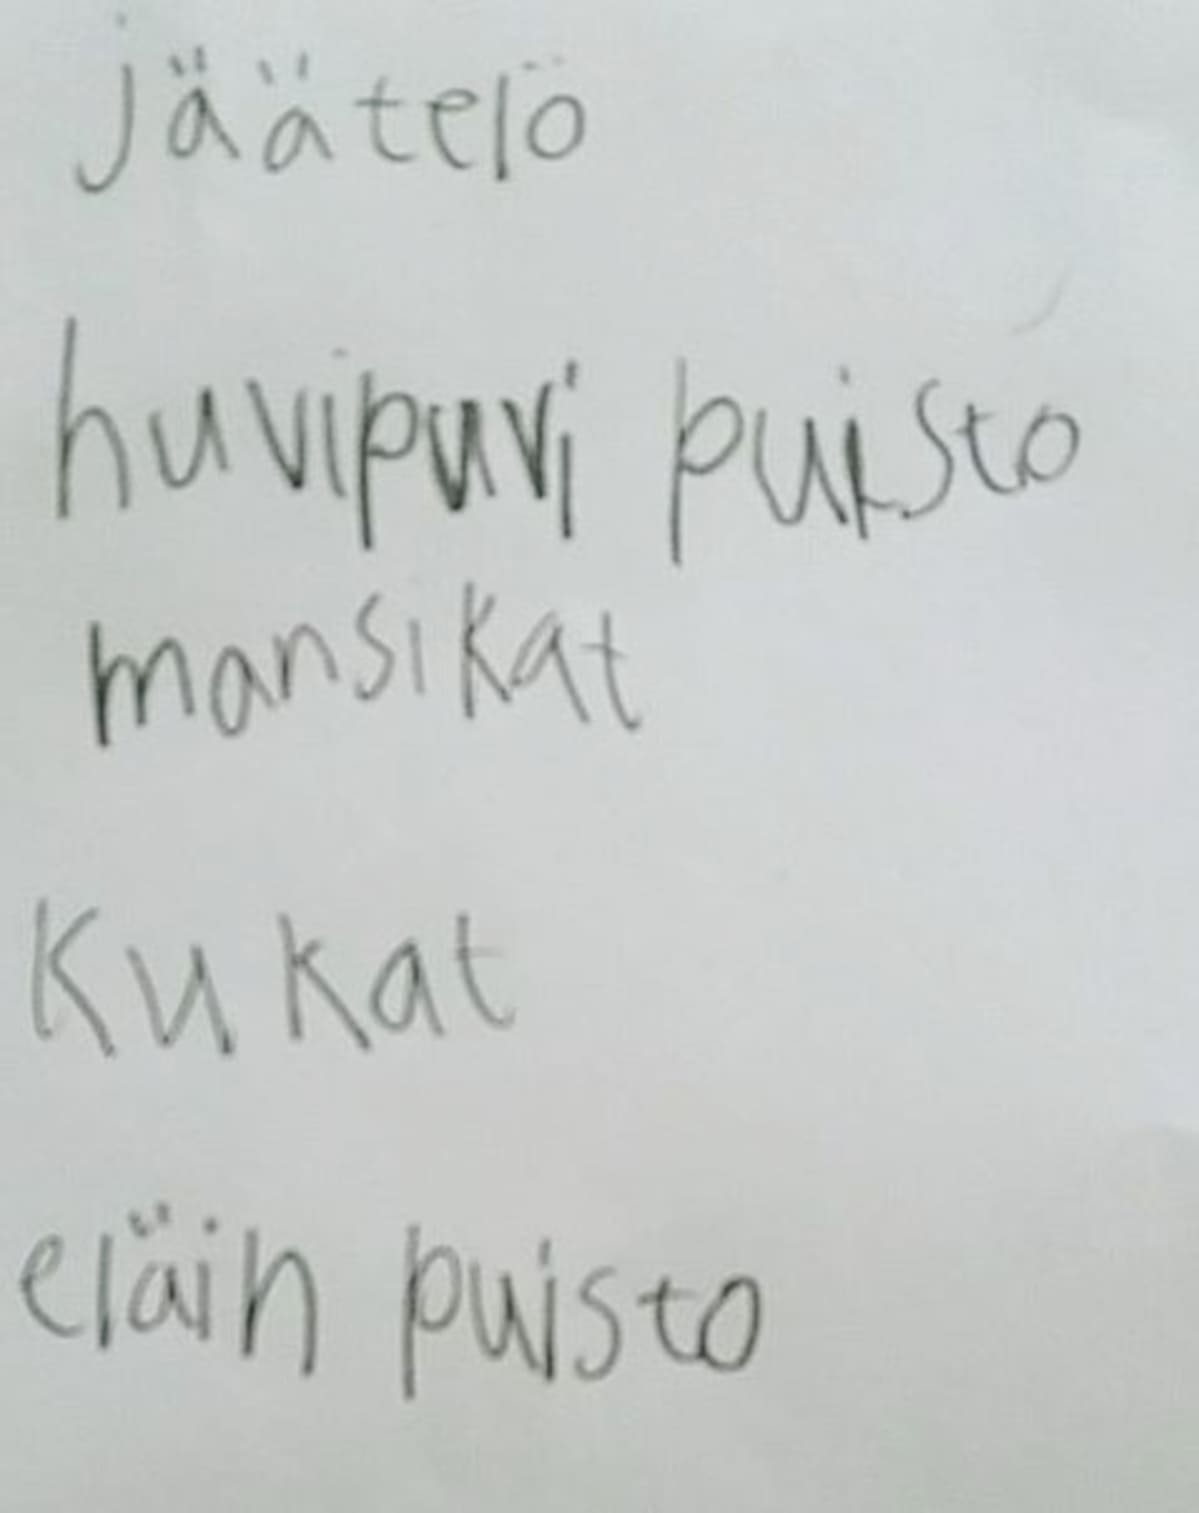 jäätelö
huvipuvi puisto
mansikat
Kukat
eläin puisto